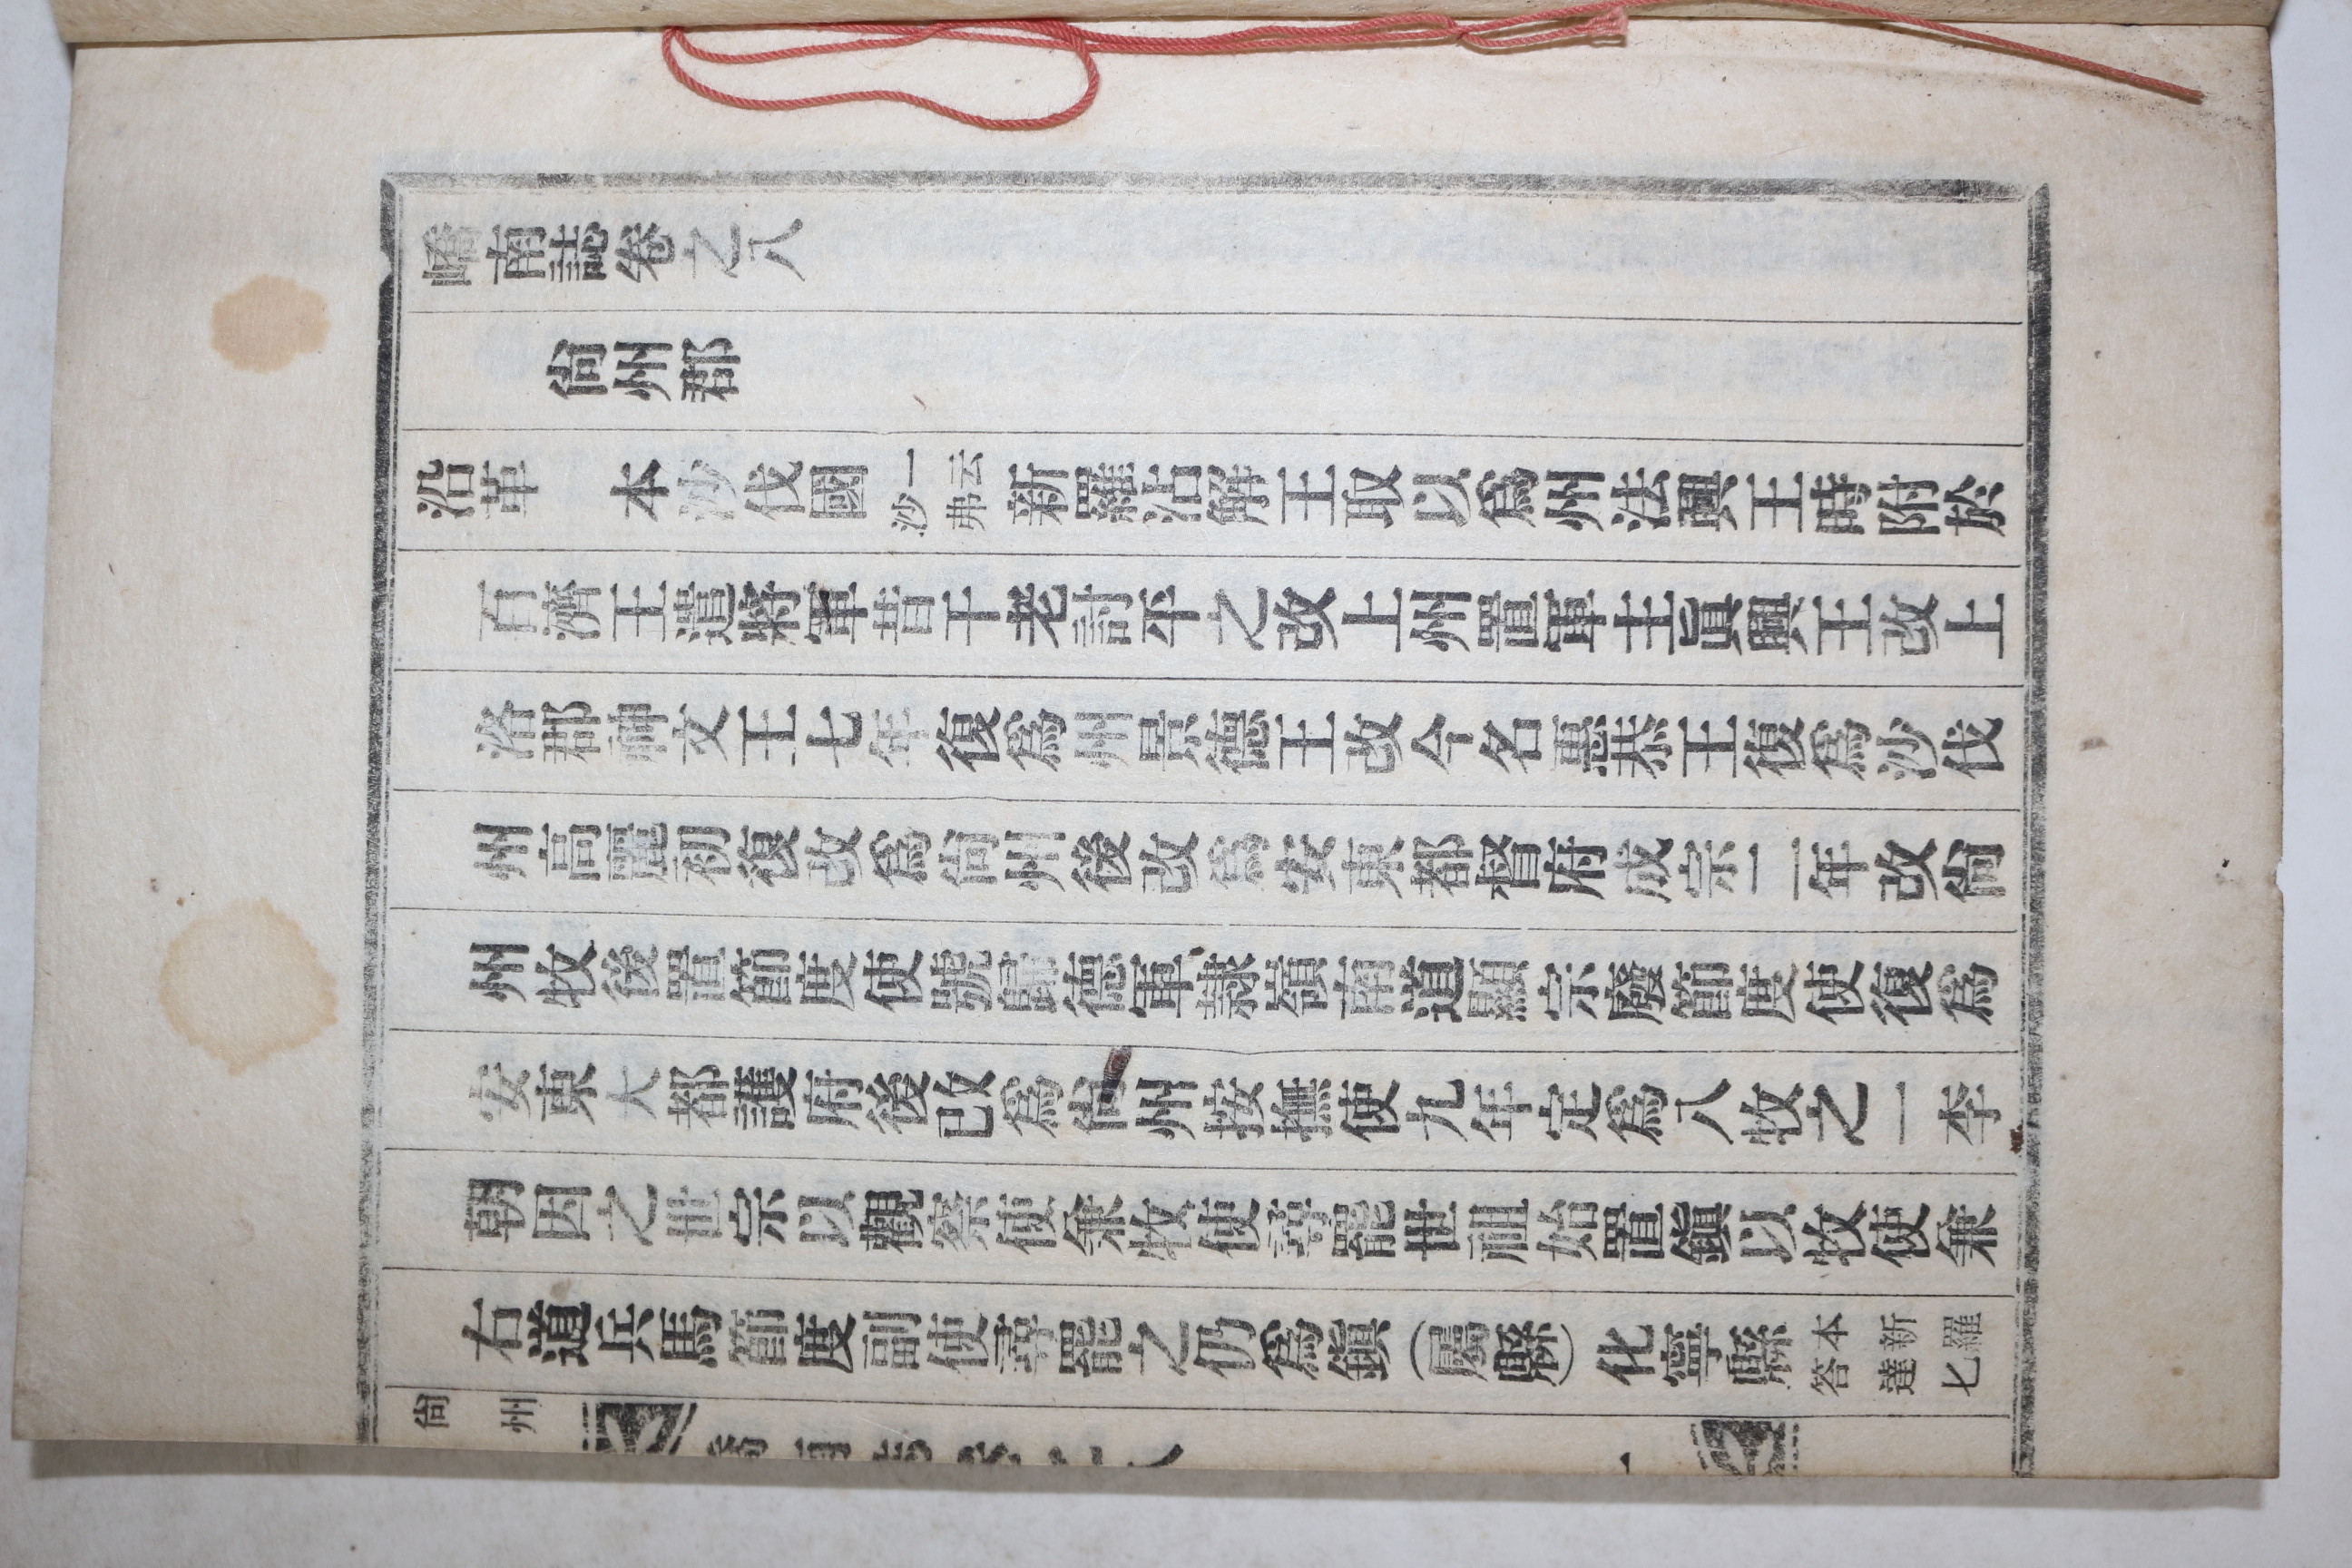 嶠南誌卷之八
尙州郡
沿革 本沙伐國 一云沙弗 新羅沾解王取以爲州法興王時附於
百濟王遣將軍昔干老討平之改上州置軍主眞興王改上
洛郡神文王七年復爲州景德王改今名惠恭王復爲沙伐
州高麗初復改爲尙州後改爲安東都督府成宗二年改尙
州牧後置節度使號歸德軍隷嶺南道顯宗廢節度使復爲
安東大都護府後改爲尙州按撫使九年定爲八牧之一李
朝因之世宗以觀察使兼牧使尋罷世祖始置鎭以牧使兼
右道兵馬節度副使尋罷之仍爲鎭(屬縣)化寧縣 本新羅答達匕
尙州